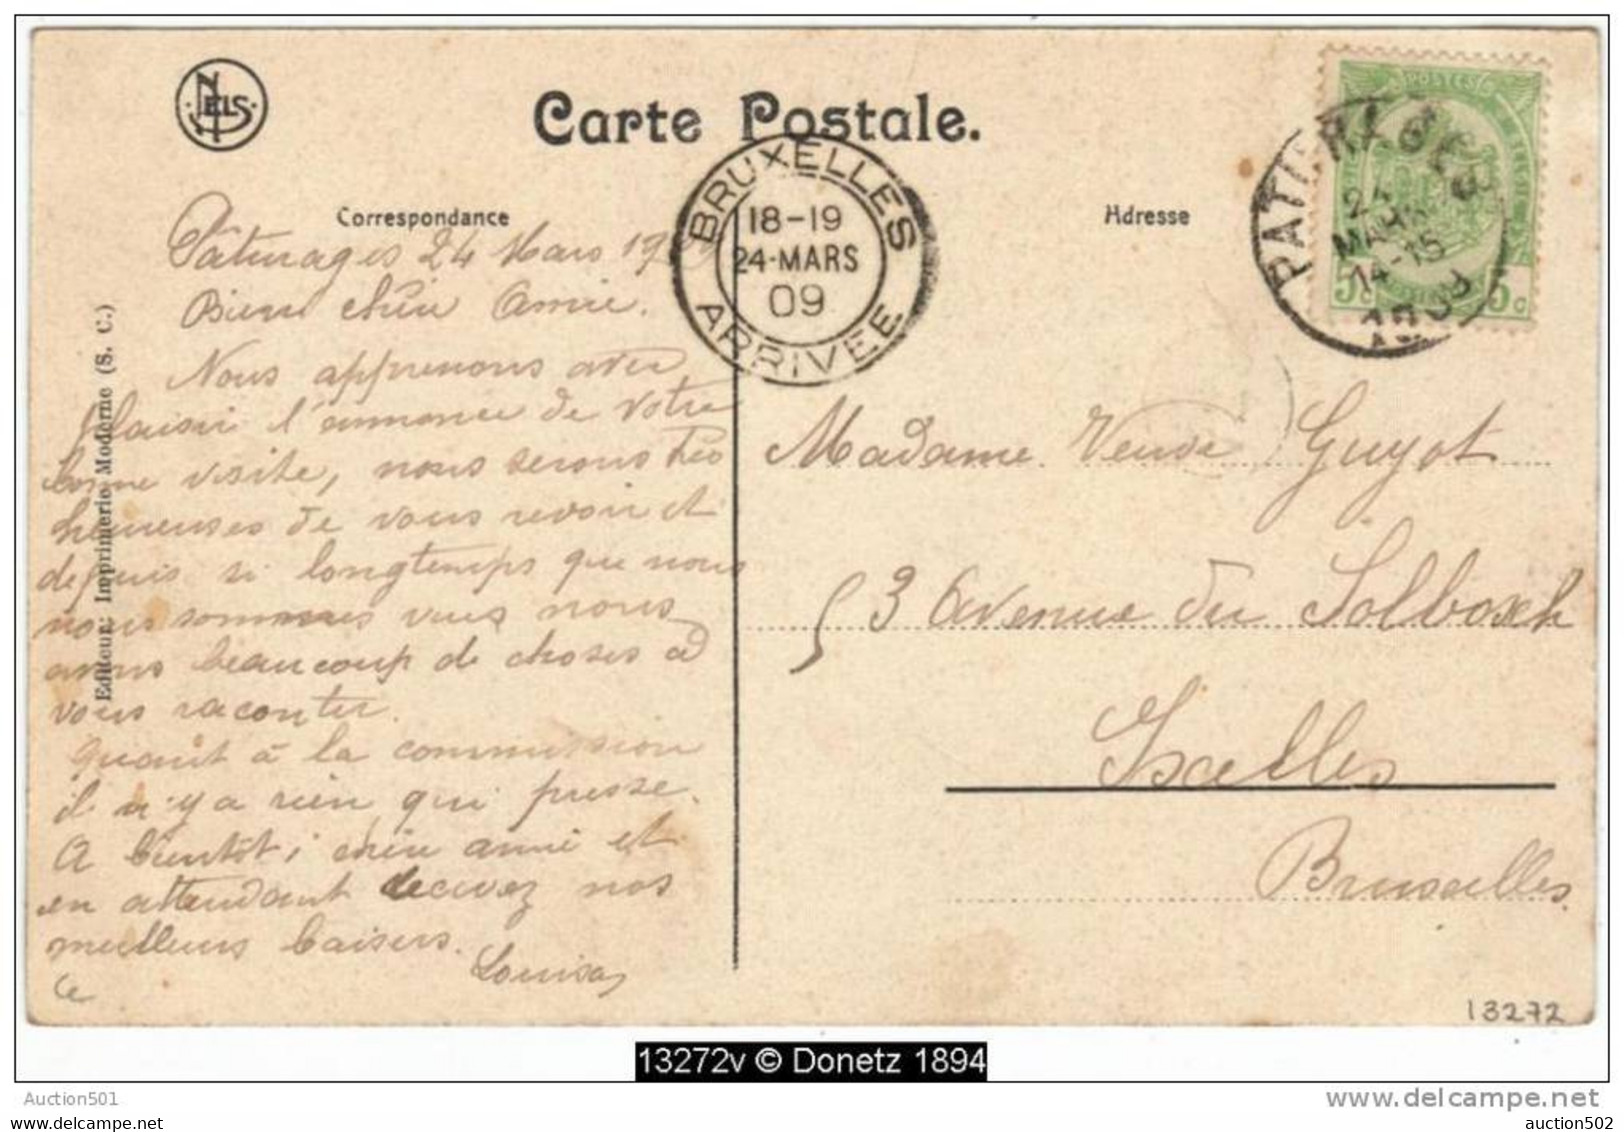 NELS
Carte Postale.
Correspondance
Adresse
BRUXELLES
18-19
24-MARS
09
ARRIVEE
PATURAGES
24
MARS
14-15
1909
POSTES
5c
5c
Editeur: Imprimerie Moderne (S. C.)
Pâturages 24 Mars 1909
Bien chère Amie.
Nous apprenons avec
plaisir l'annonce de votre
bonne visite, nous serons très
heureuses de vous revoir et
depuis si longtemps que nous
nous sommes vues nous
avons beaucoup de choses à
vous raconter.
Quant à la commission
il n'y a rien qui presse.
A bientôt, chère amie et
en attendant recevez nos
meilleurs baisers.
Louisa
Madame Veuve Guyot
53 Avenue du Solbosch
Ixelles
Bruxelles.
13272
13272v © Donetz 1894
Auction501
delcampe.net
auction502